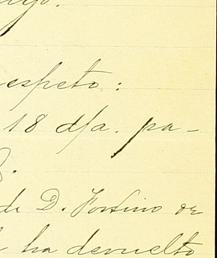 espeto:
18 d/a. pa-
de D. Fortino de
ha devuelto